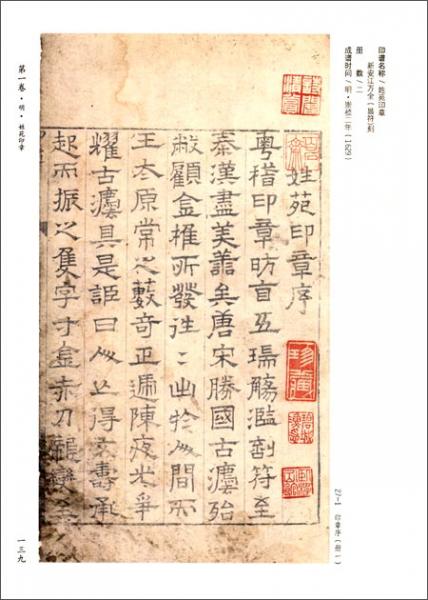 印谱名称/姓苑印章
新安江万全(昌符)刻
册　数/二
成谱时间/明·崇祯二年(1629)
姓苑印章序
粤稽印章昉首五瑞觴濫剖符至
秦漢盡美善矣唐宋勝國古殆
顧金椎所發往〻出於人間而
王太原常之藪奇正遞陳夜光爭
燿古具是詎曰人亡得壽承
起而振之隻字寸金赤刀
珍藏
27-1 印章序(册一)
第一卷·明·姓苑印章
一三九